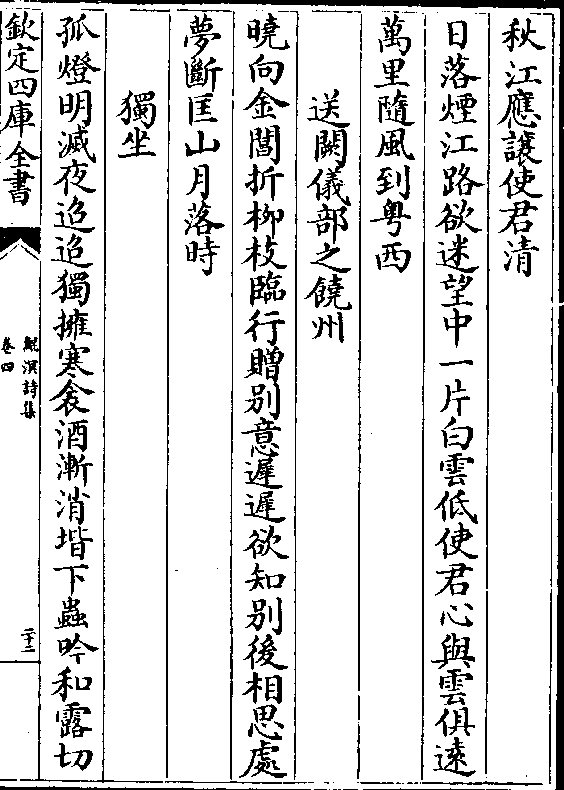 秋江應讓使君清
日落煙江路欲迷望中一片白雲低使君心與雲俱遠
萬里隨風到粤西
送闕儀部之饒州
曉向金閶折柳枝臨行贈別意遲遲欲知別後相思處
夢斷匡山月落時
獨坐
孤燈明滅夜迢迢獨擁寒衾酒漸消堦下蟲吟和露切
欽定四庫全書
鯤溟詩集
卷四
二十二